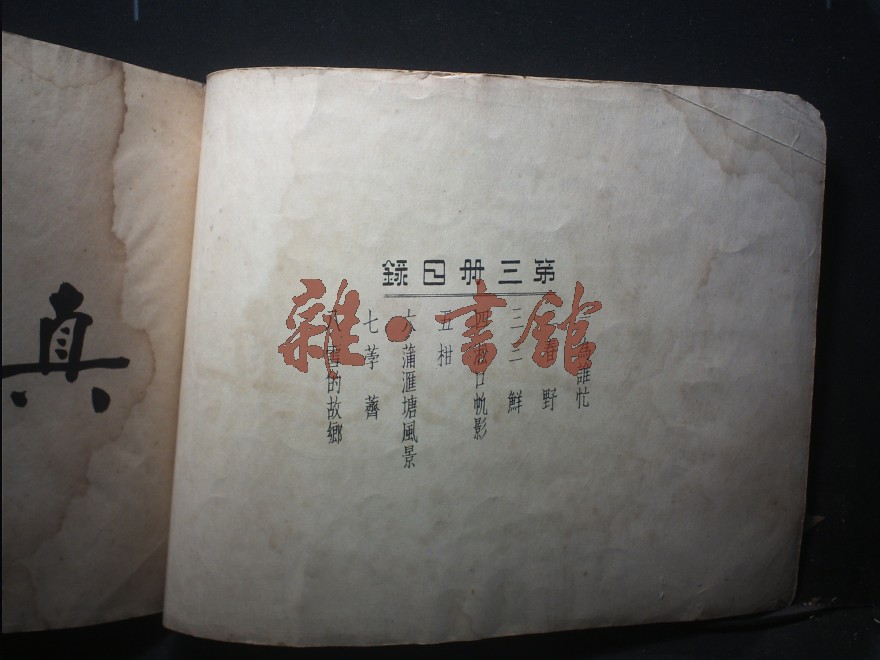 真
第三册目錄
為誰忙
野
三 二鮮
四 口帆影
五 柑
六 蒲滙塘風景
七 荸薺
八 雪的故鄉
雜·書館